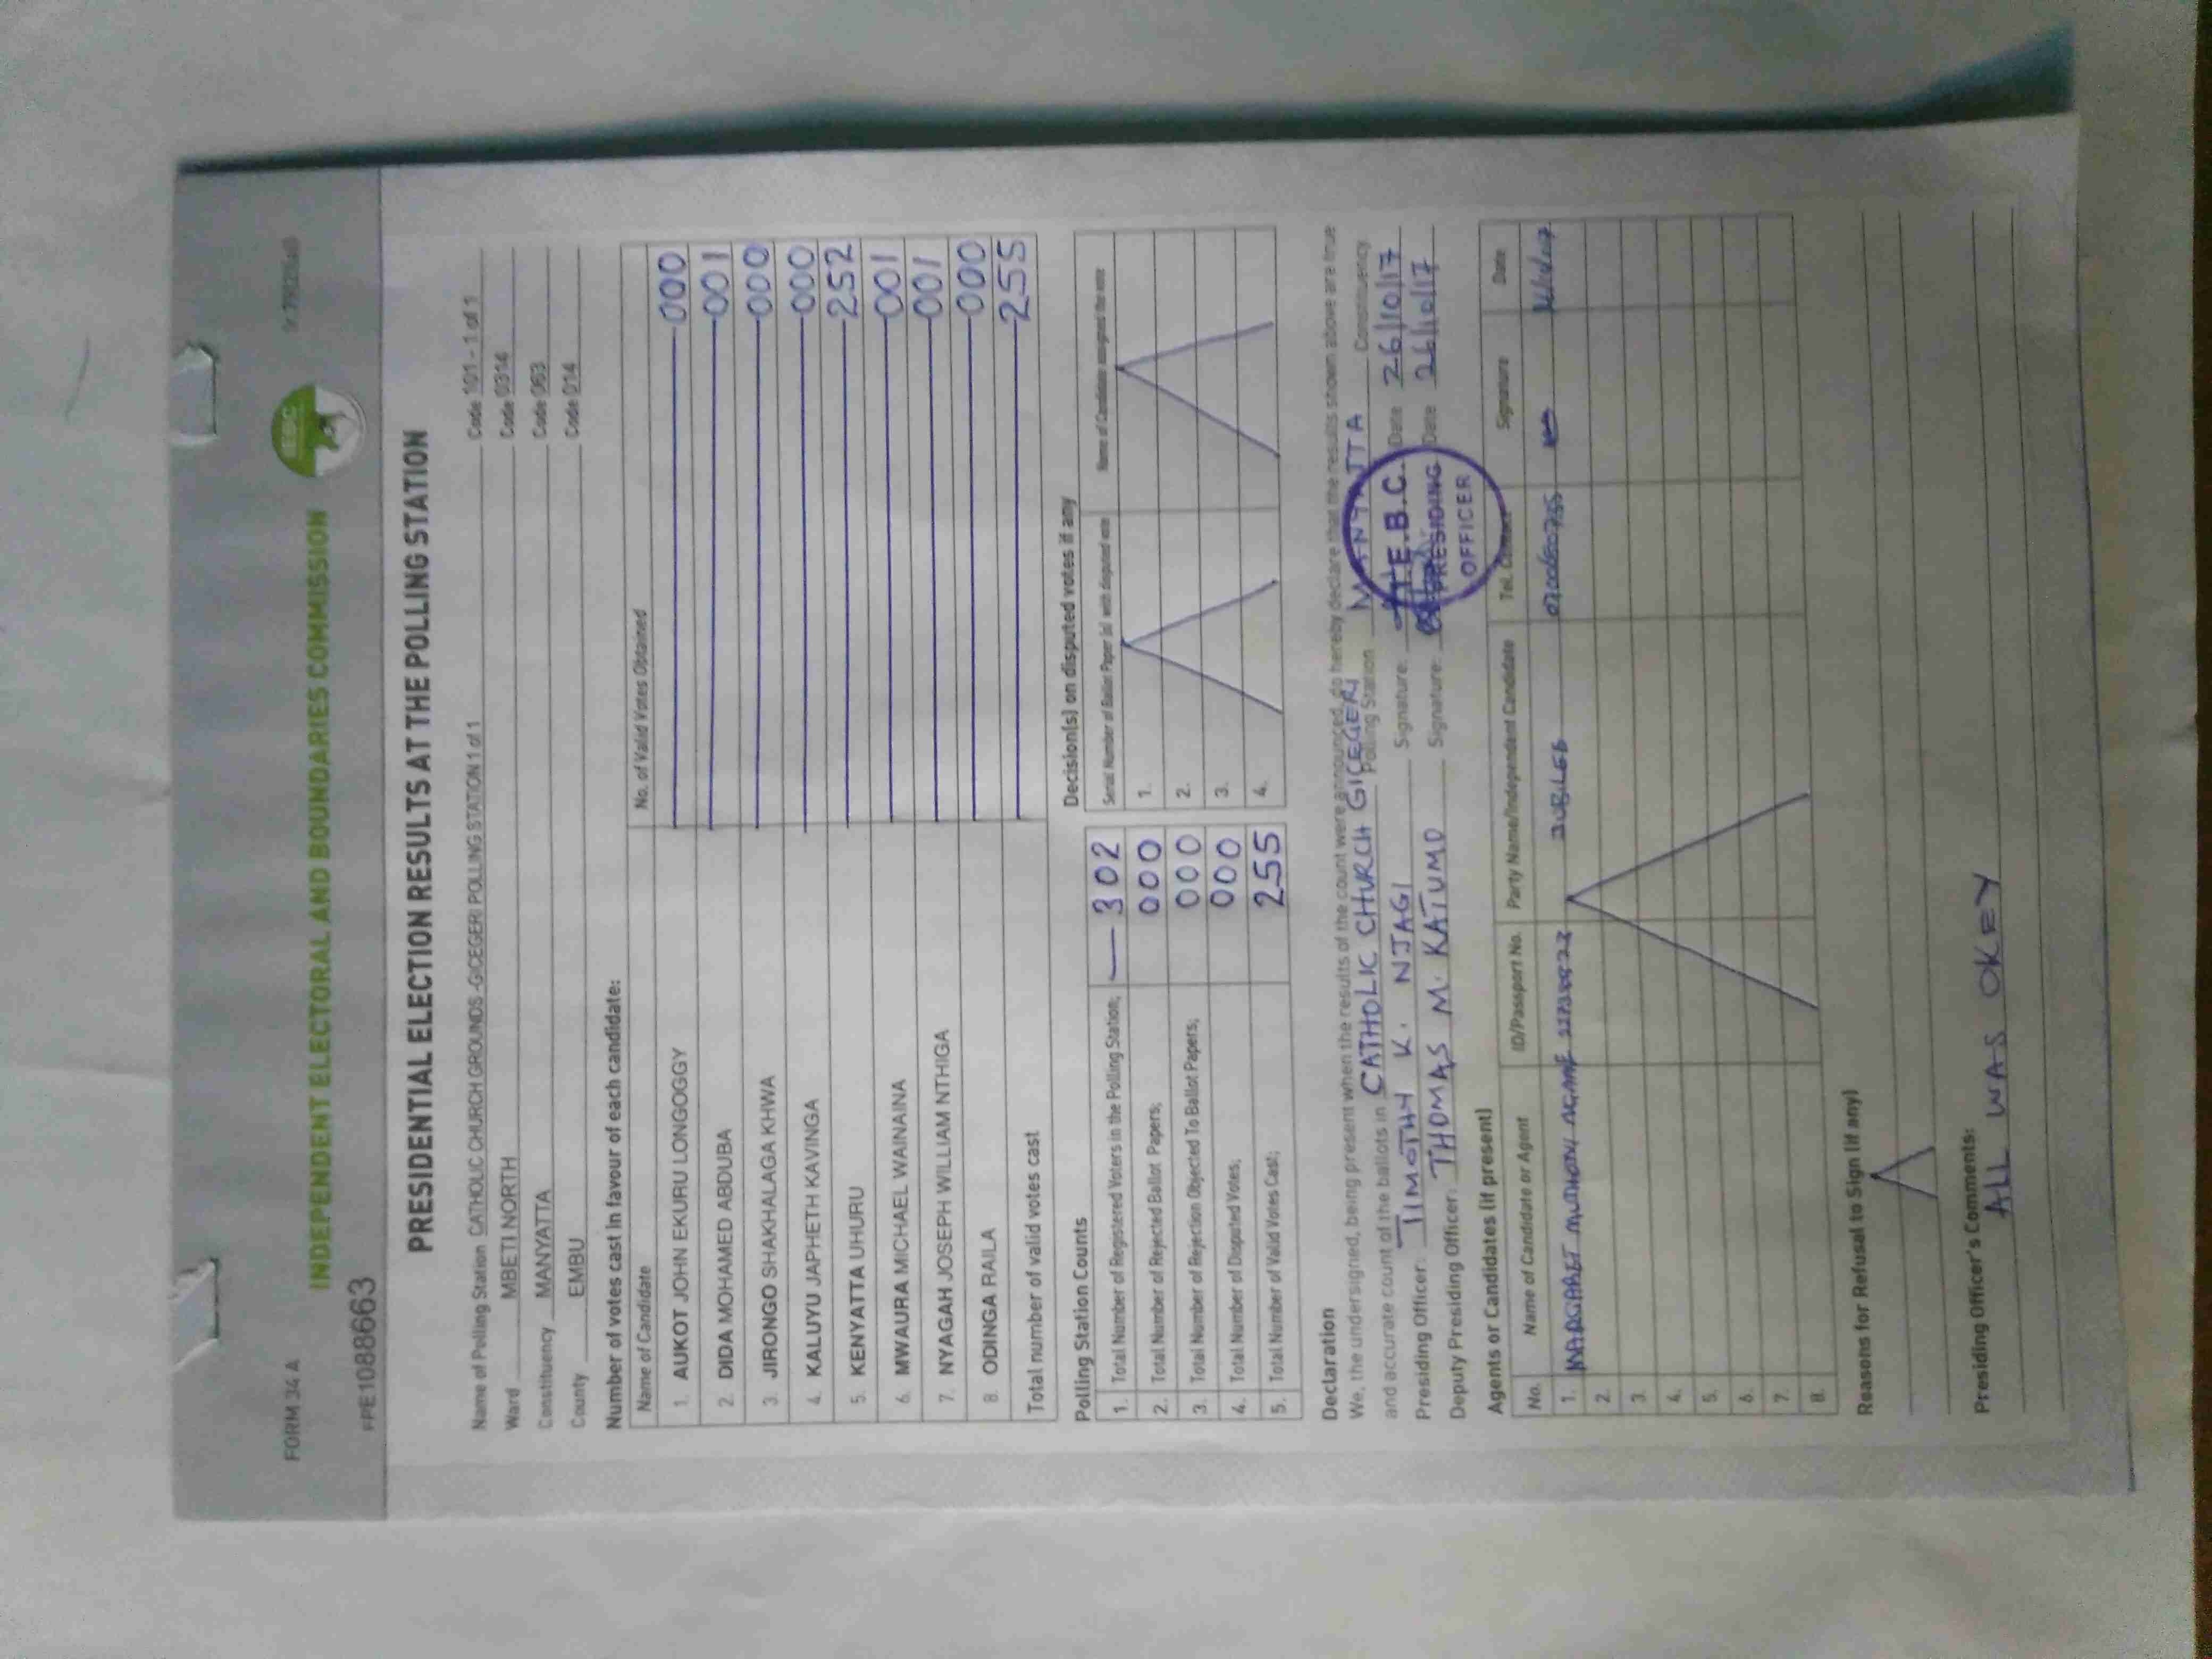 FORM 34 A
INDEPENDENT ELECTORAL AND BOUNDARIES COMMISSION
IEBC
PRE1088663
PRESIDENTIAL ELECTION RESULTS AT THE POLLING STATION
Name of Polling Station CATHOLIC CHURCH GROUNDS -GICEGERI POLLING STATION 1 of 1 Code 101 - 1 of 1
Ward MBETI NORTH Code 0314
Constituency MANYATTA Code 063
County EMBU Code 014
Number of votes cast in favour of each candidate:
Name of Candidate No. of Valid Votes Obtained
1. AUKOT JOHN EKURU LONGOGGY 000
2. DIDA MOHAMED ABDUBA 001
3. JIRONGO SHAKHALAGA KHWA 000
4. KALUYU JAPHETH KAVINGA 000
5. KENYATTA UHURU 252
6. MWAURA MICHAEL WAINAINA 001
7. NYAGAH JOSEPH WILLIAM NTHIGA 001
8. ODINGA RAILA 000
Total number of valid votes cast 255
Polling Station Counts
1. Total Number of Registered Voters in the Polling Station; 302
2. Total Number of Rejected Ballot Papers; 000
3. Total Number of Rejection Objected To Ballot Papers; 000
4. Total Number of Disputed Votes; 000
5. Total Number of Valid Votes Cast; 255
Decision(s) on disputed votes if any
Serial Number of Ballot Paper (s) with disputed vote Name of Candidate assigned the vote
1.
2.
3.
4.
Declaration
We, the undersigned, being present when the results of the count were announced, do hereby declare that the results shown above are true
and accurate count of the ballots in CATHOLIC CHURCH GICEGERI Polling Station MANYATTA Constituency
Presiding Officer: TIMOTHY K. NJAGI Signature: Date 26/10/17
Deputy Presiding Officer: THOMAS M. KATUMO Signature: Date 26/10/17
I.E.B.C.
PRESIDING
OFFICER
Agents or Candidates (if present)
No. Name of Candidate or Agent ID/Passport No. Party Name/Independent Candidate Tel. Contact Signature Date
1. MARGARET JUBILEE
2.
3.
4.
5.
6.
7.
8.
Reasons for Refusal to Sign (if any)
Presiding Officer's Comments:
ALL WAS OKEY